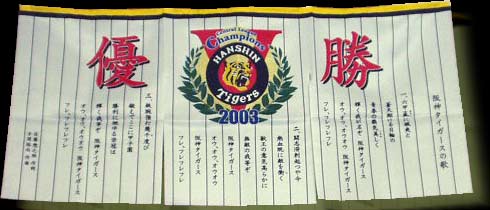 優勝
Central League
Champions
HANSHIN
Tigers
2003
阪神タイガースの歌
一、六甲颪に颯爽と
蒼天翔ける日輪の
青春の覇気美しく
輝く我が名ぞ 阪神タイガース
オウ、オウ、オウオウ 阪神タイガース
フレ、フレフレフレ
二、闘志溌剌起つや今
熱血既に敵を衝く
獣王の意気高らかに
無敵の我等ぞ 阪神タイガース
オウ、オウ、オウオウ 阪神タイガース
フレ、フレフレフレ
三、鉄腕強打幾千度び
鍛えてここに甲子園
勝利に燃ゆる栄冠は
輝く我等ぞ 阪神タイガース
オウ、オウ、オウオウ 阪神タイガース
フレ、フレフレフレ